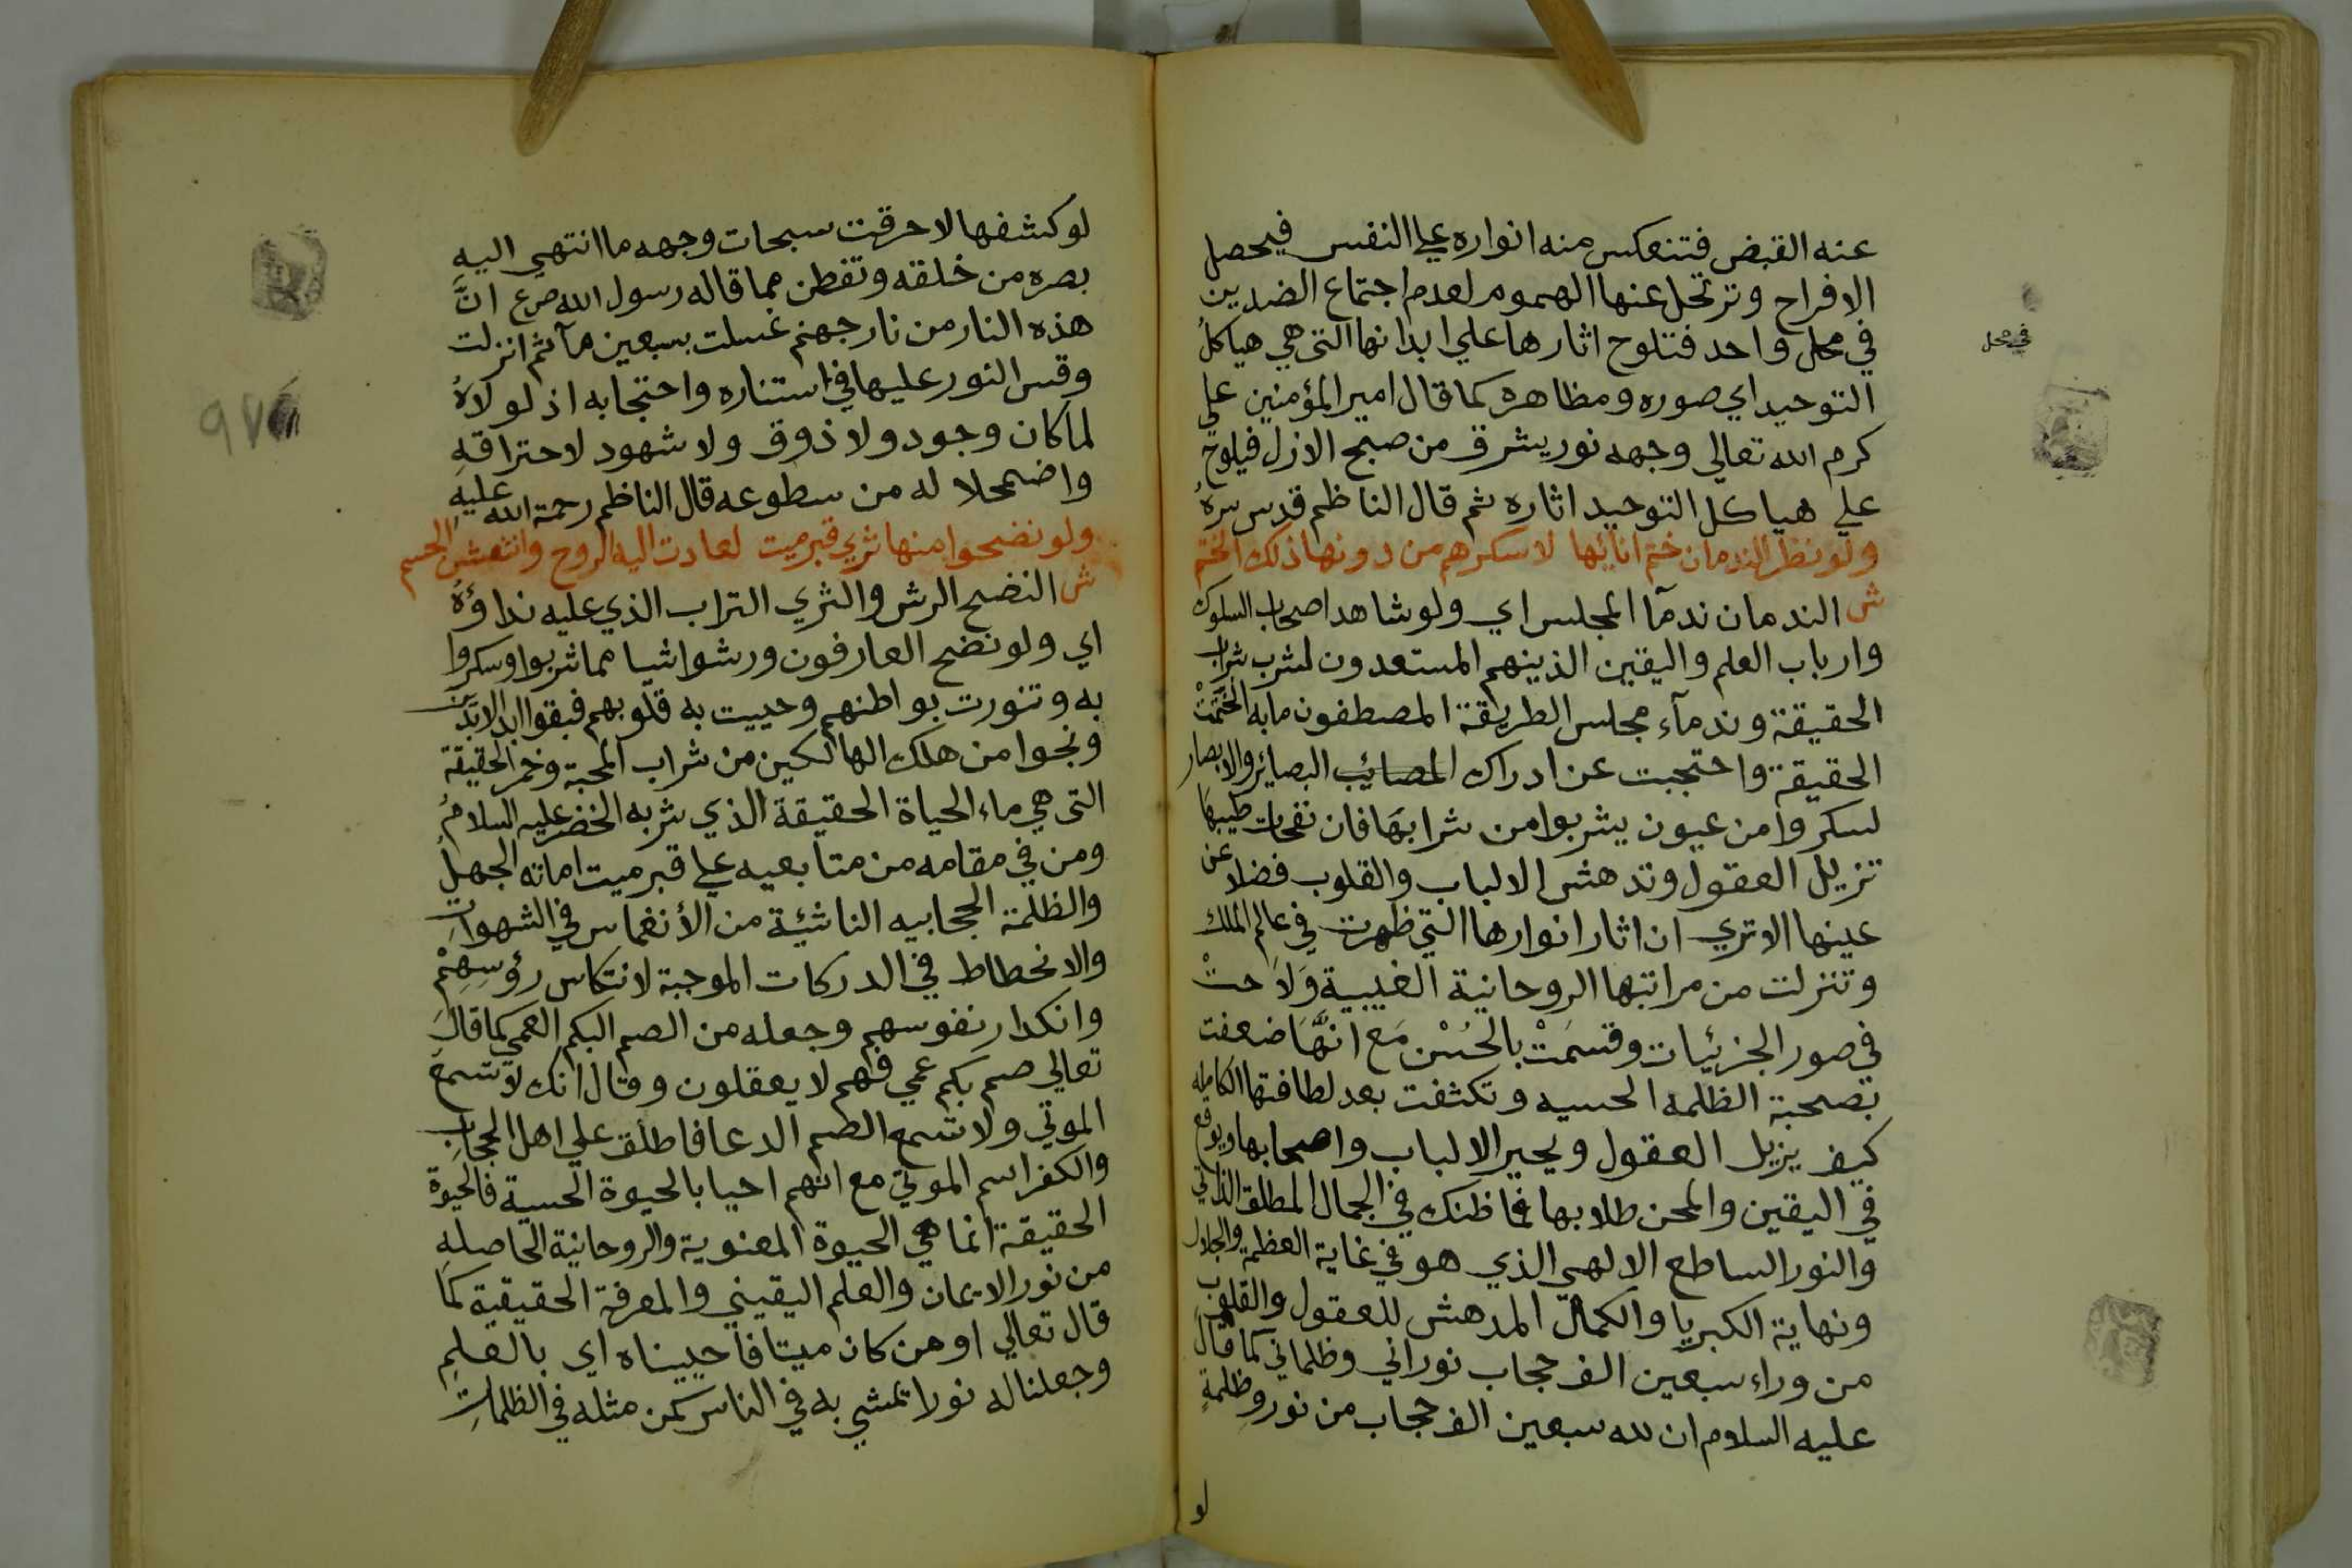 عنه القبض فتنعكس منه انواره علي النفس فيحصل
الافراح وترتحل عنها الهموم لعدم اجتماع الضدين
في محل واحد فتلوح اثارها علي ابدانها التي هي هياكل
في محل
التوحيد اي صوره ومظاهره كما قال امير المؤمنين علي
كرم الله تعالي وجهه نور يشرق من صبح الازل فيلوح
علي هياكل التوحيد اثاره ثم قال الناظم قدس سره
ولو نظر الندمان ختم انائها لاسكرهم من دونها ذلك الختم
ش الندمان ندمآ المجلس اي ولو شاهد اصحاب السلوك
وارباب العلم واليقين الذينهم المستعدون لشرب شراب
الحقيقة وندمآء مجلس الطريقة المصطفون مابه اختتمت
الحقيقة واحتجبت عن ادراك المصائب البصائر والابصار
لسكروا من عيون يشربوا من شرابها فان نفحات طيبها
تزيل العقول وتدهش الالباب والقلوب فضلا عن
عينها الا تري ان اثار انوارها التي ظهرت في عالم الملك
وتنزلت من مراتبها الروحانية الغيبية ولاحت
في صور الجزئيات وقسمت بالحسن مع انها ضعفت
بصحبة الظلمه الحسيه وتكثفت بعد لطافتها الكامله
كيف يزيل العقول ويحير الالباب واصحابها ويوقع
في اليقين والمحن طلابها فما ظنك في الجمال المطلق الذاتي
والنور الساطع الالهي الذي هو في غاية العظمة والجلال
ونهاية الكبريا والكمال المدهش للعقول والقلوب
من وراء سبعين الف حجاب نوراني وظلماني كما قال
عليه السلام ان لله سبعين الف حجاب من نور وظلمة
لو
لو كشفها لاحرقت سبحات وجهه ما انتهي اليه
بصره من خلقه وتفطن مما قاله رسول الله صرع ان
هذه النار من نار جهنم غسلت بسبعين مآ ثم انزلت
وقس النور عليها في استناره واحتجابه اذ لولاه
لما كان وجود ولا ذوق ولا شهود لاحتراقه
واضمحلاله من سطوعه قال الناظم رحمة الله عليه
ولو نضحوا منها ثري قبر ميت لعادت اليه الروح وانتعش الجسم
ش النضح الرش والثري التراب الذي عليه نداوة
اي ولو نضح العارفون ورشوا شيا مما شربوا وسكروا
به وتنورت بواطنهم وحييت به قلوبهم فبقوا ابد الابدين
ونجوا من هلك الهالكين من شراب المحبة وخمر الحقيقة
التي هي ماء الحياة الحقيقة الذي شربه الخضر عليه السلام
ومن في مقامه من متابعيه علي قبر ميت اماته الجهل
والظلمة الحجابيه الناشئة من الأنغماس في الشهوات
والانحطاط في الدركات الموجبة لانتكاس رؤسهم
وانكدار نفوسهم وجعله من الصم البكم العمي كما قال
تعالي صم بكم عمي فهم لا يعقلون وقال انك لا تسمع
الموتي ولا تسمع الصم الدعا فاطلق علي اهل الحجاب
والكفر اسم الموتي مع انهم احيا بالحيوة الحسية فالحيوة
الحقيقة انما هي الحيوة المعنوية والروحانية الحاصله
من نور الايمان والعلم اليقيني والمعرفة الحقيقية كما
قال تعالي او من كان ميتا فاحييناه اي بالعلم
وجعلنا له نورا يمشي به في الناس كمن مثله في الظلمات